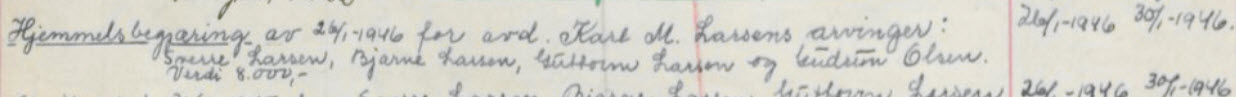 Hjemmelsbegjæring av 26/1-1946 for avd. Karl M. Larsens arvinger: 26/1-1946 30/1-1946.
Sverre Larsen, Bjarne Larsen, Guttorm Larsen og Gudrun Olsen.
Verdi 8.000,-
Larsen 26/1-1946 30/1-1946